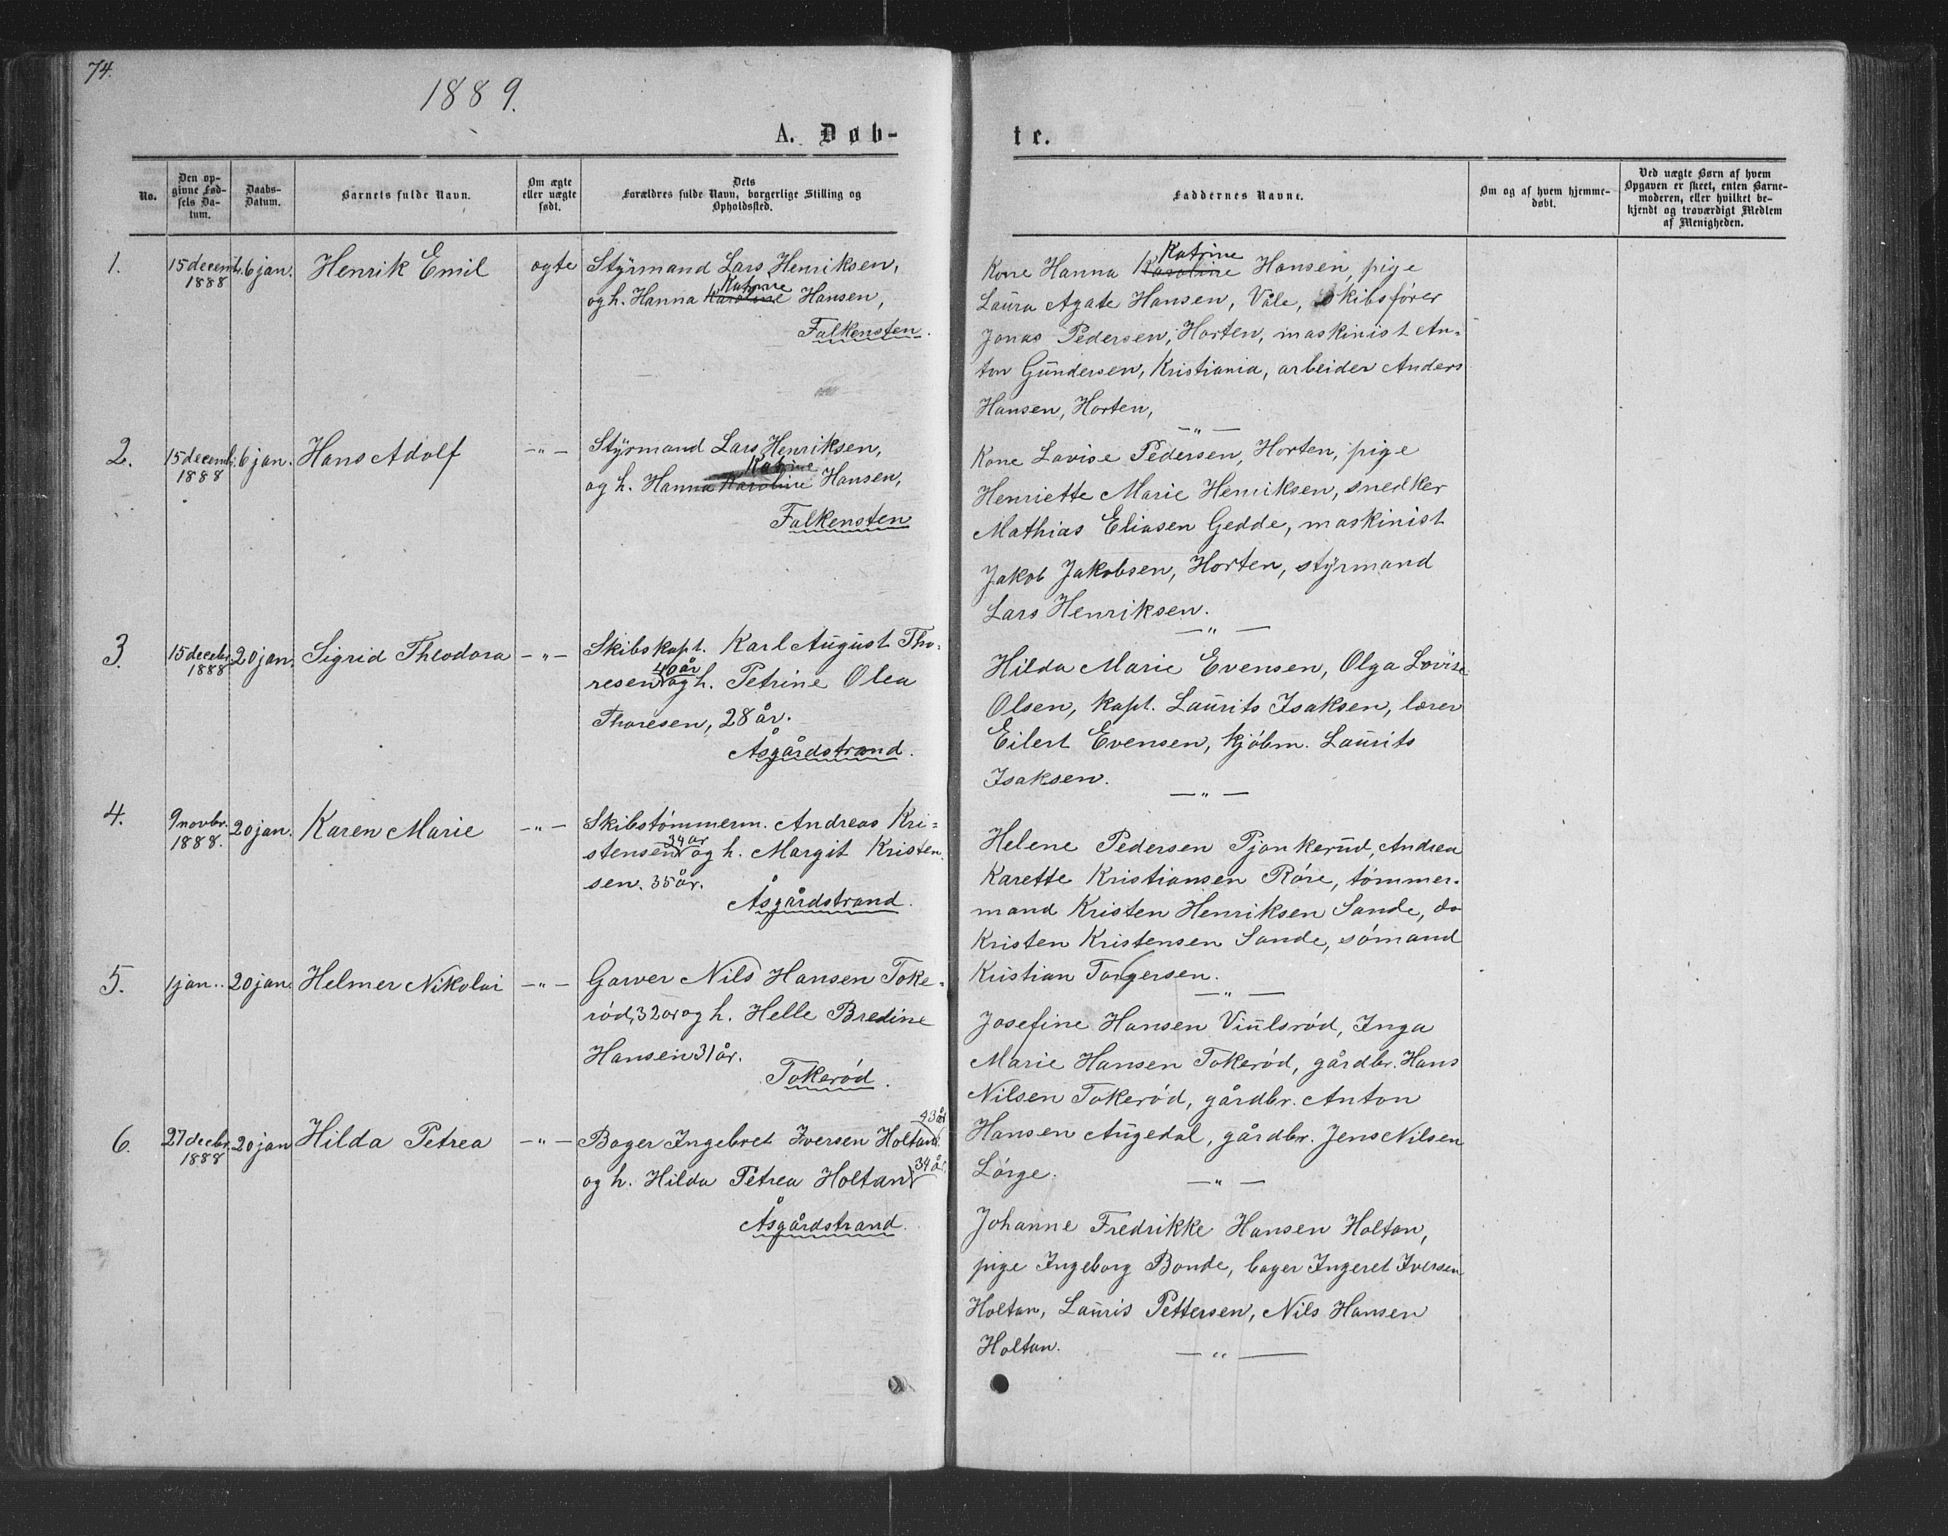 74.
1889.
A. Døb-
te.
No.
Den op-
givne Fød-
sels Da-
tum.
Daabs-
Datum.
Barnets fulde Navn.
Om ægte
eller uægte
født.
Dets
Forældres fulde Navn, borgerlige Stilling og
Opholdssted.
Faddernes Navne.
Om og af hvem hjemme-
døbt.
Ved uægte Børn af hvem
Opgaven er skeet, enten Barne-
moderen, eller hvilket be-
kjendt og troværdigt Medlem
af Menigheden.
1.
15 decemb.
1888
6 jan.
Henrik Emil
ægte
Styrmand Lars Henriksen,
Katrine
og h. Hanna Karoline Hansen,
Falkensten.
Katrine
Kone Hanna Karoline Hansen, pige
Laura Agate Hansen, Våle, skibsfører
Jonas Pedersen, Horten, maskinist An-
ton Gundersen, Kristiania, arbeider Anders
Hansen, Horten,
— „ —
2.
15 decemb.
1888
6 jan.
Hans Adolf
— „ —
Styrmand Lars Henriksen,
Katrine
og h. Hanna Karoline Hansen,
Falkensten
Kone Lovise Pedersen, Horten, pige
Henriette Marie Henriksen, snedker
Mathias Eliasen Gedde, maskinist
Jakob Jakobsen, Horten, styrmand
Lars Henriksen.
— „ —
3.
15 decebr.
1888
20 jan.
Sigrid Theodora
— „ —
Skibskapt. Karl August Tho-
40 år
resen og h. Petrine Olea
Thoresen, 28 år.
Åsgårdstrand.
Hilda Marie Evensen, Olga Lovise
Olsen, kapt. Laurits Isaksen, lærer
Eilert Evensen, kjøbm. Laurits
Isaksen.
— „ —
4.
9 novbr.
1888.
20 jan.
Karen Marie
— „ —
Skibstømmerm. Andreas Kri-
34 år
stensen og h. Margit Kristen-
sen. 35 år.
Åsgårdstrand.
Helene Pedersen Pjonkerud, Andrea
Karette Kristiansen Røre, tømmer-
mand Kristen Henriksen Sande, do
Kristen Kristensen Sande, sømand
Kristian Torgersen.
— „ —
5.
1 jan.
20 jan.
Helmer Nikolai
— „ —
Garver Nils Hansen Toke-
rød, 32 år og h. Helle Bredine
Hansen 31 år.
Tokerød.
Josefine Hansen Viulsrød, Inga
Marie Hansen Tokerød, gårdbr. Hans
Nilsen Tokerød, gårdbr. Anton
Hansen Augedal, gårdbr. Jens Nilsen
Lørge.
— „ —
6.
27 decbr.
1888
20 jan
Hilda Petrea
— „ —
43 år
Bager Ingebret Iversen Holtan.
34 år.
og h. Hilda Petrea Holtan
Åsgårdstrand.
Johanne Fredrikke Hansen Holtan,
pige Ingeborg Bonde, bager Ingeret Iversen
Holtan, Lauris Pettersen, Nils Hansen
Holtan.
— „ —